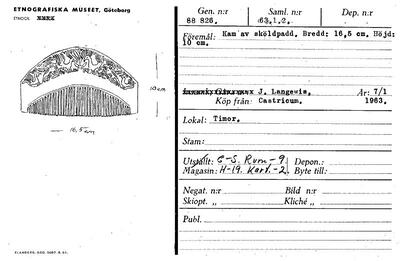 ETNOGRAFISKA MUSEET, Göteborg
ETNOGR.
10 cm
16,5 cm
ELANDERS, GBG. 5087. 8. 61.
Gen. n:r Saml. n:r Dep. n:r
88 826. 63.1.2.
Föremål: Kam av sköldpadd. Bredd: 16,5 cm. Höjd:
10 cm.
J. Langewis. År: 7/1
Köp från: Castricum. 1963.
Lokal: Timor.
Stam:
Utställt: C-S. Rum-9 Depon.:
Magasin: H-19. Kart.-2. Byte till:
Negat. n:r Bild n:r
Skiopt. „ Kliché „
Publ.